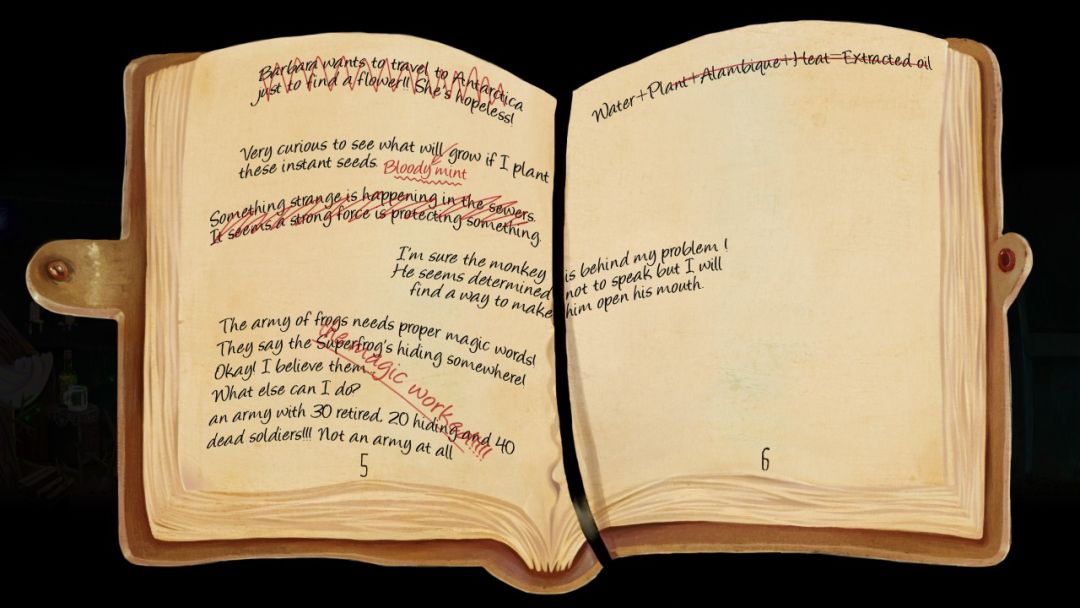 Barbara wants to travel to Antarctica
just to find a flower!! She's hopeless!
Very curious to see what will grow if I plant
these instant seeds. Bloody mint
Something strange is happening in the sewers.
It seems a strong force is protecting something.
I'm sure the monkey is behind my problem !
He seems determined not to speak but I will
find a way to make him open his mouth.
The army of frogs needs proper magic words!
They say the Superfrog's hiding somewhere!
Okay! I believe them...
What else can I do?
an army with 30 retired, 20 hiding and 40
dead soldiers!!! Not an army at all
the magic worked!!!!!
5
Water+Plant+Alambique+Heat=Extracted oil
6